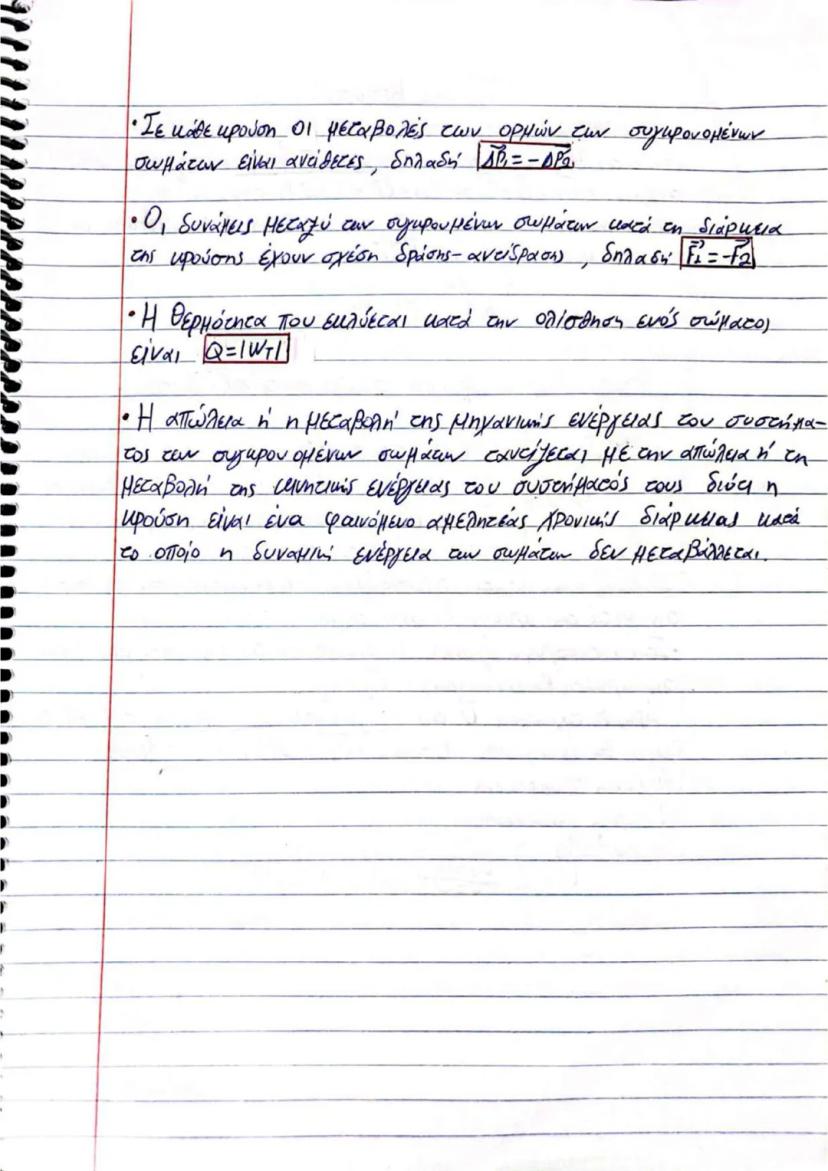 • Σε κάθε κρούση οι μεταβολές των ορμών των συγκρουομένων
σωμάτων είναι αντίθετες, δηλαδή ΔP⃗₁ = -ΔP⃗₂
• Οι δυνάμεις μεταξύ των συγκρουμένων σωμάτων κατά τη διάρκεια
της κρούσης έχουν σχέση δράσης-αντίδρασης, δηλαδή F⃗₁ = -F⃗₂
• Η θερμότητα που εκλύεται κατά την ολίσθηση ενός σώματος
είναι Q=|W_T|
• Η απώλεια ή η μεταβολή της μηχανικής ενέργειας του συστήμα-
τος των συγκρουομένων σωμάτων ταυτίζεται με την απώλεια ή τη
μεταβολή της κινητικής ενέργειας του συστήματός τους διότι η
κρούση είναι ένα φαινόμενο αμελητέας χρονικής διάρκειας κατά
το οποίο η δυναμική ενέργεια των σωμάτων δεν μεταβάλλεται.